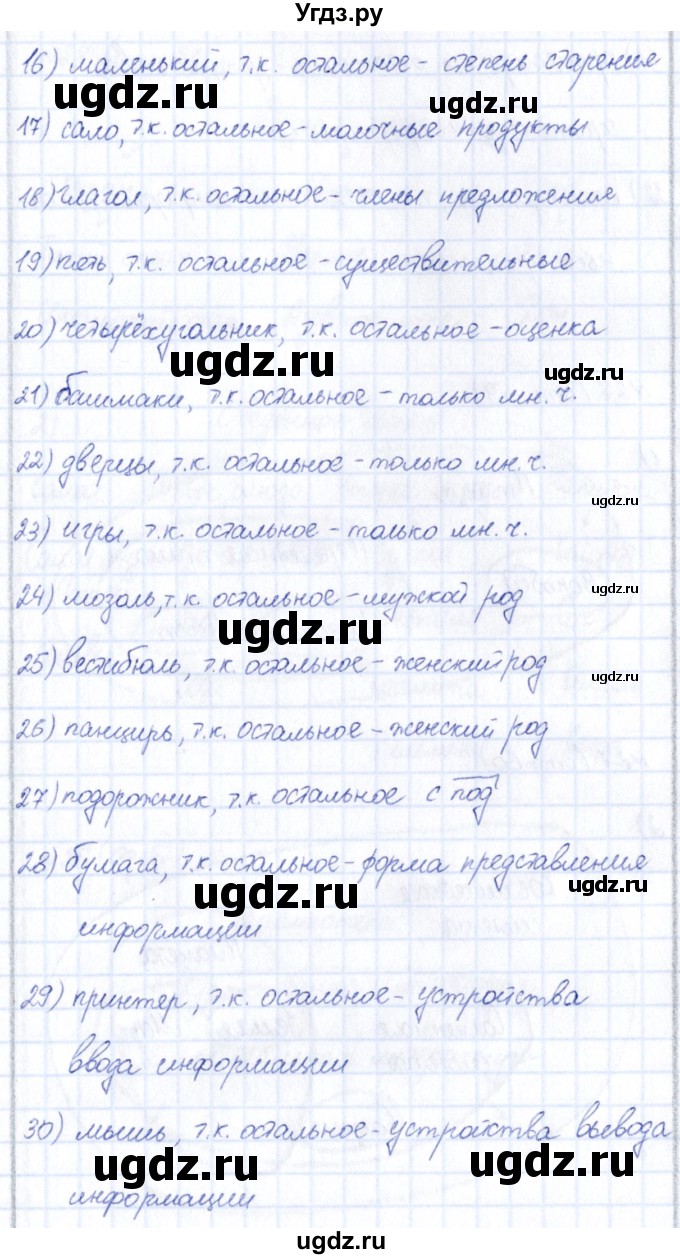 Угдз.ру
16) маленький, т.к. остальное - степень старения
ugdz.ru ugdz.ru
17) сало, т.к. остальное - молочные продукты
18) глагол, т.к. остальное - члены предложения
19) пять, т.к. остальное - существительные
20) четырёхугольник, т.к. остальное - оценка
ugdz.ru ugdz.ru
21) башмаки, т.к. остальное - только мн.ч.
22) дверцы, т.к. остальное - только мн.ч.
ugdz.ru
23) игры, т.к. остальное - только мн.ч.
24) мозоль, т.к. остальное - мужской род
ugdz.ru ugdz.ru
25) вестибюль, т.к. остальное - женский род
ugdz.ru
26) панцирь, т.к. остальное - женский род
27) подорожник, т.к. остальное с под
28) бумага, т.к. остальное - форма представления
ugdz.ru ugdz.ru
информации
29) принтер, т.к. остальное - устройства
ввода информации
30) мышь, т.к. остальное - устройства вывода
ugdz.ru ugdz.ru
информации
ugdz.ru